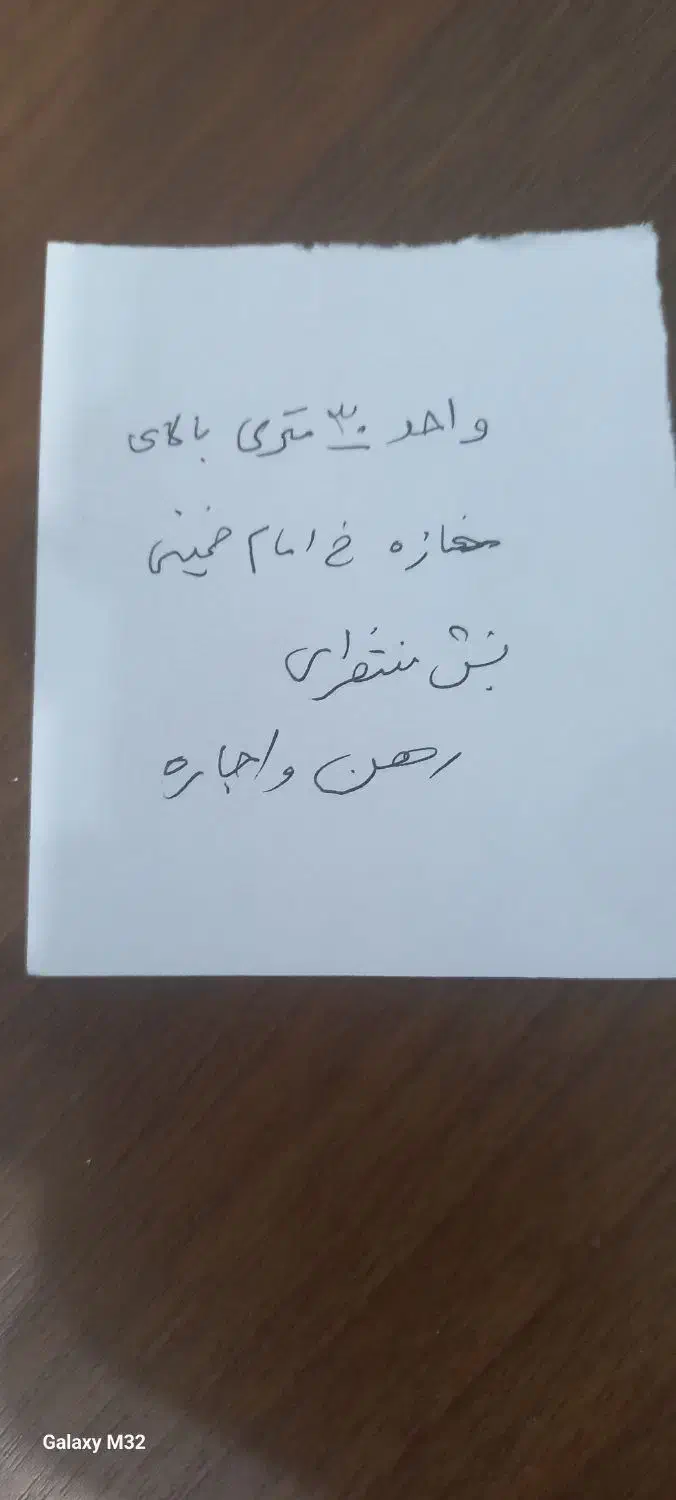 واحد ۳۰ متری بالای
مغازه خ امام خمینی
نبش
رهن و اجاره
Galaxy M32